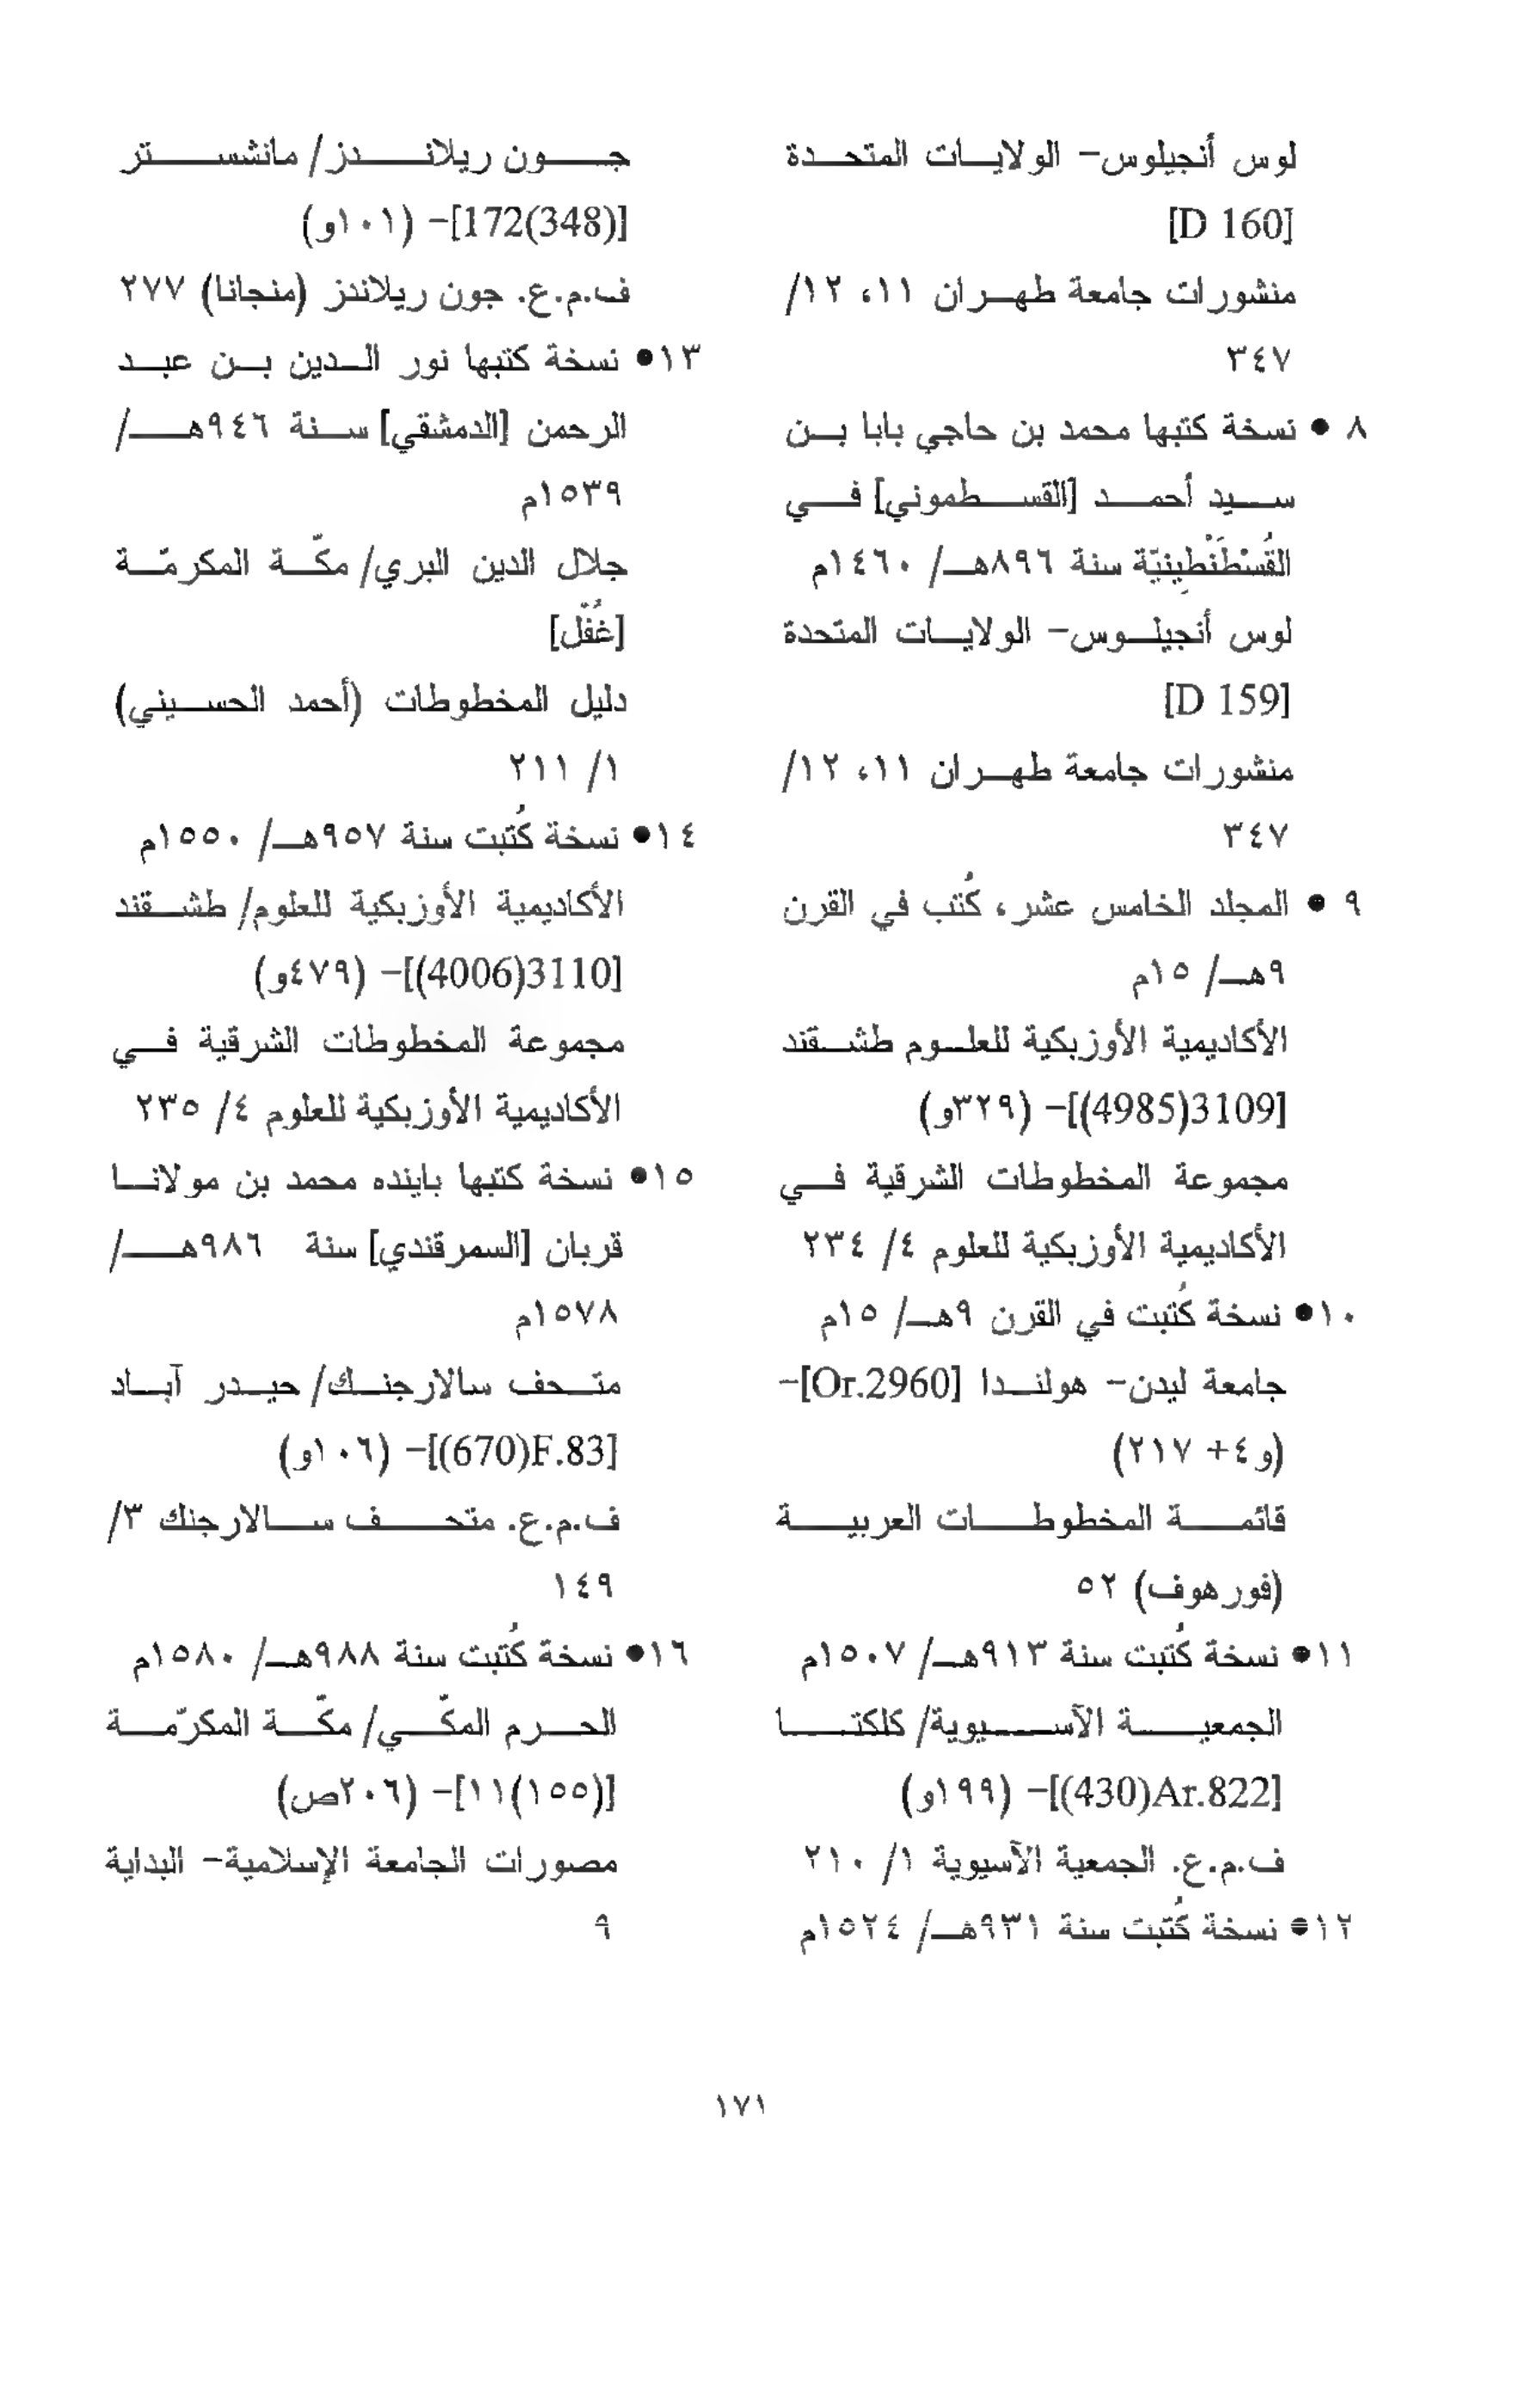 لوس أنجيلوس- الولايات المتحدة
[D 160]
منشورات جامعة طهران ١١، ١٢/
٣٤٧
٨ • نسخة كتبها محمد بن حاجي بابا بن
سيد أحمد [القسطموني] في
القُسْطَنْطِينيّة سنة ٨٩٦هـ/ ١٤٦٠م
لوس أنجيلوس- الولايات المتحدة
[D 159]
منشورات جامعة طهران ١١، ١٢/
٣٤٧
٩ • المجلد الخامس عشر، كُتب في القرن
٩هـ/ ١٥م
الأكاديمية الأوزبكية للعلوم طشقند
[3109(4985)]- (٣٢٩و)
مجموعة المخطوطات الشرقية في
الأكاديمية الأوزبكية للعلوم ٤/ ٢٣٤
١٠• نسخة كُتبت في القرن ٩هـ/ ١٥م
جامعة ليدن- هولندا [Or.2960]-
(و٤+ ٢١٧)
قائمة المخطوطات العربية
(فورهوف) ٥٢
١١• نسخة كُتبت سنة ٩١٣هـ/ ١٥٠٧م
الجمعية الآسيوية/ كلكتا
[Ar.822(430)]- (١٩٩و)
ف.م.ع. الجمعية الآسيوية ١/ ٢١٠
١٢• نسخة كُتبت سنة ٩٣١هـ/ ١٥٢٤م
جون ريلاندز/ مانشستر
[172(348)]- (١٠١و)
ف.م.ع. جون ريلاندز (منجانا) ٢٧٧
١٣• نسخة كتبها نور الدين بن عبد
الرحمن [الدمشقي] سنة ٩٤٦هـ/
١٥٣٩م
جلال الدين البري/ مكّة المكرمّة
[غُفّل]
دليل المخطوطات (أحمد الحسيني)
١/ ٢١١
١٤• نسخة كُتبت سنة ٩٥٧هـ/ ١٥٥٠م
الأكاديمية الأوزبكية للعلوم/ طشقند
[3110(4006)]- (٤٧٩و)
مجموعة المخطوطات الشرقية في
الأكاديمية الأوزبكية للعلوم ٤/ ٢٣٥
١٥• نسخة كتبها باينده محمد بن مولانا
قربان [السمرقندي] سنة ٩٨٦هـ/
١٥٧٨م
متحف سالارجنك/ حيدر آباد
[F.83(670)]- (١٠٦و)
ف.م.ع. متحف سالارجنك ٣/
١٤٩
١٦• نسخة كُتبت سنة ٩٨٨هـ/ ١٥٨٠م
الحرم المكّي/ مكّة المكرّمة
[١١(١٥٥)]- (٢٠٦ص)
مصورات الجامعة الإسلامية- البداية
٩
١٧١